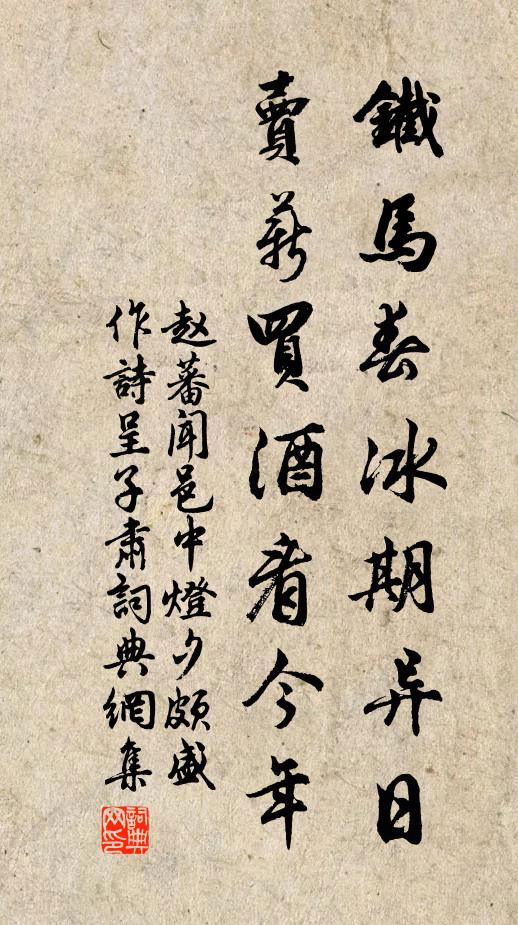 鐵馬春冰期异日
賣薪買酒看今年
赵蕃闻邑中燈夕颇盛
作詩呈子肅詞典網集
詞典網印